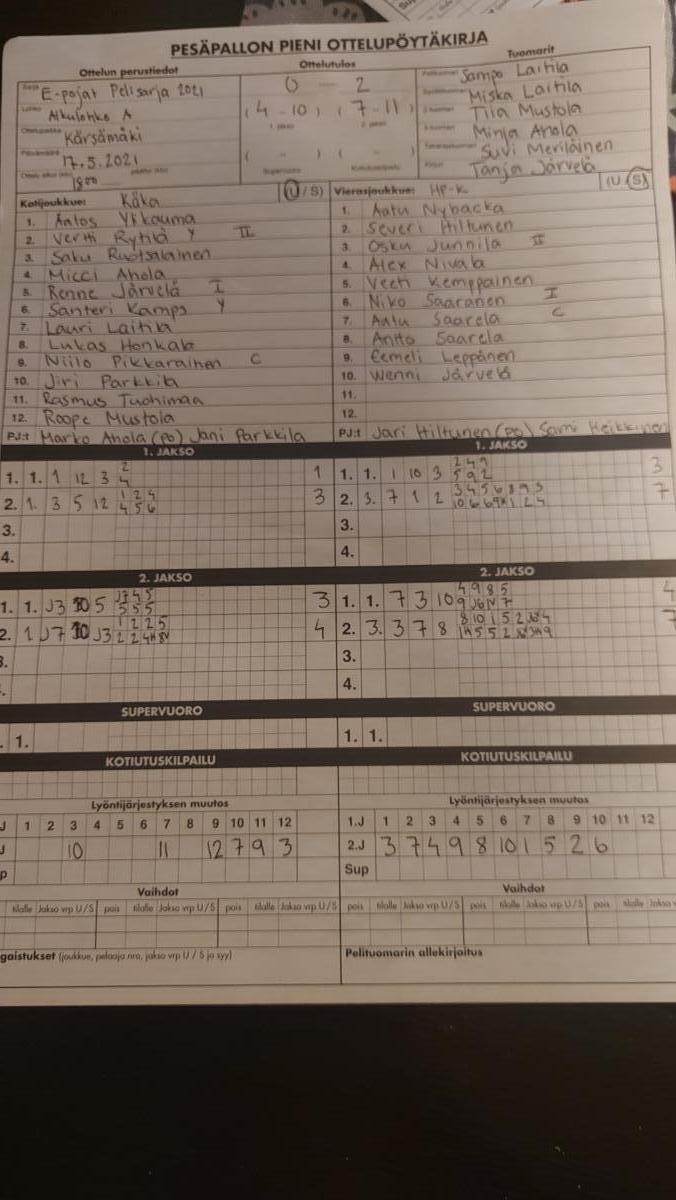 PESÄPALLON PIENI OTTELUPÖYTÄKIRJA
Ottelun perustiedot
E-pojat Pelisarja 2021
Alkulohko A
Kärsämäki
17.5.2021
1800
Ottelutulos
0 - 2
(4 - 10) (7 - 11)
1. jakso 2. jakso
( - ) ( - )
Supervuoro Kotiutuskilpailu
Tuomarit
Sampo Laitila
Miska Laitila
Tiia Mustola
Minja Ahola
Suvi Meriläinen
Tanja Järvelä
Kotijoukkue: KäKa (U/S)
1. Aatos Ylikauma
2. Vertti Rytilä Y II
3. Saku Ruotsalainen
4. Micci Ahola
5. Renne Järvelä I
6. Santeri Kamps Y
7. Lauri Laitila
8. Lukas Honkala
9. Niilo Pikkarainen C
10. Jiri Parkkila
11. Rasmus Tuohimaa
12. Roope Mustola
PJ:t Marko Ahola (po) Jani Parkkila
Vierasjoukkue: HP-K (U/S)
1. Aatu Nybacka
2. Severi Hiltunen
3. Osku Junnila II
4. Alex Nivala
5. Veeti Kemppainen
6. Niko Saaranen I
7. Aatu Saarela C
8. Antto Saarela
9. Eemeli Leppänen
10. Wenni Järvelä
11.
12.
PJ:t Jari Hiltunen (po) Sami Heikkinen
1. JAKSO
1. 1. 1 12 3 2 4 1
2. 1. 3 5 12 1 2 4 4 5 6 3
3.
4.
1. JAKSO
1. 1. 1 10 3 2 4 9 5 9 2 3
2. 3. 7 1 2 7
3.
4.
2. JAKSO
1. 1. J3 10 5 J7 4 5 5 5 5 3
2. 1 J7 10 J3 1 2 2 5 4
2. JAKSO
1. 1. 7 3 10 4 9 8 5 4
2. 3. 3 7 8
3.
4.
SUPERVUORO
1.
SUPERVUORO
1. 1.
KOTIUTUSKILPAILU
KOTIUTUSKILPAILU
Lyöntijärjestyksen muutos
J 1 2 3 4 5 6 7 8 9 10 11 12
J 10 11 12 7 9 3
p
Lyöntijärjestyksen muutos
1.J 1 2 3 4 5 6 7 8 9 10 11 12
2.J 3 7 4 9 8 10 1 5 2 6
Sup
Vaihdot
tilalle Jakso vrp U/S pois tilalle Jakso vrp U/S pois tilalle Jakso vrp U/S
Vaihdot
pois tilalle Jakso vrp U/S pois tilalle Jakso vrp U/S pois tilalle Jakso
gaistukset (joukkue, pelaaja nro, jakso vrp U / S ja syy)
Pelituomarin allekirjoitus